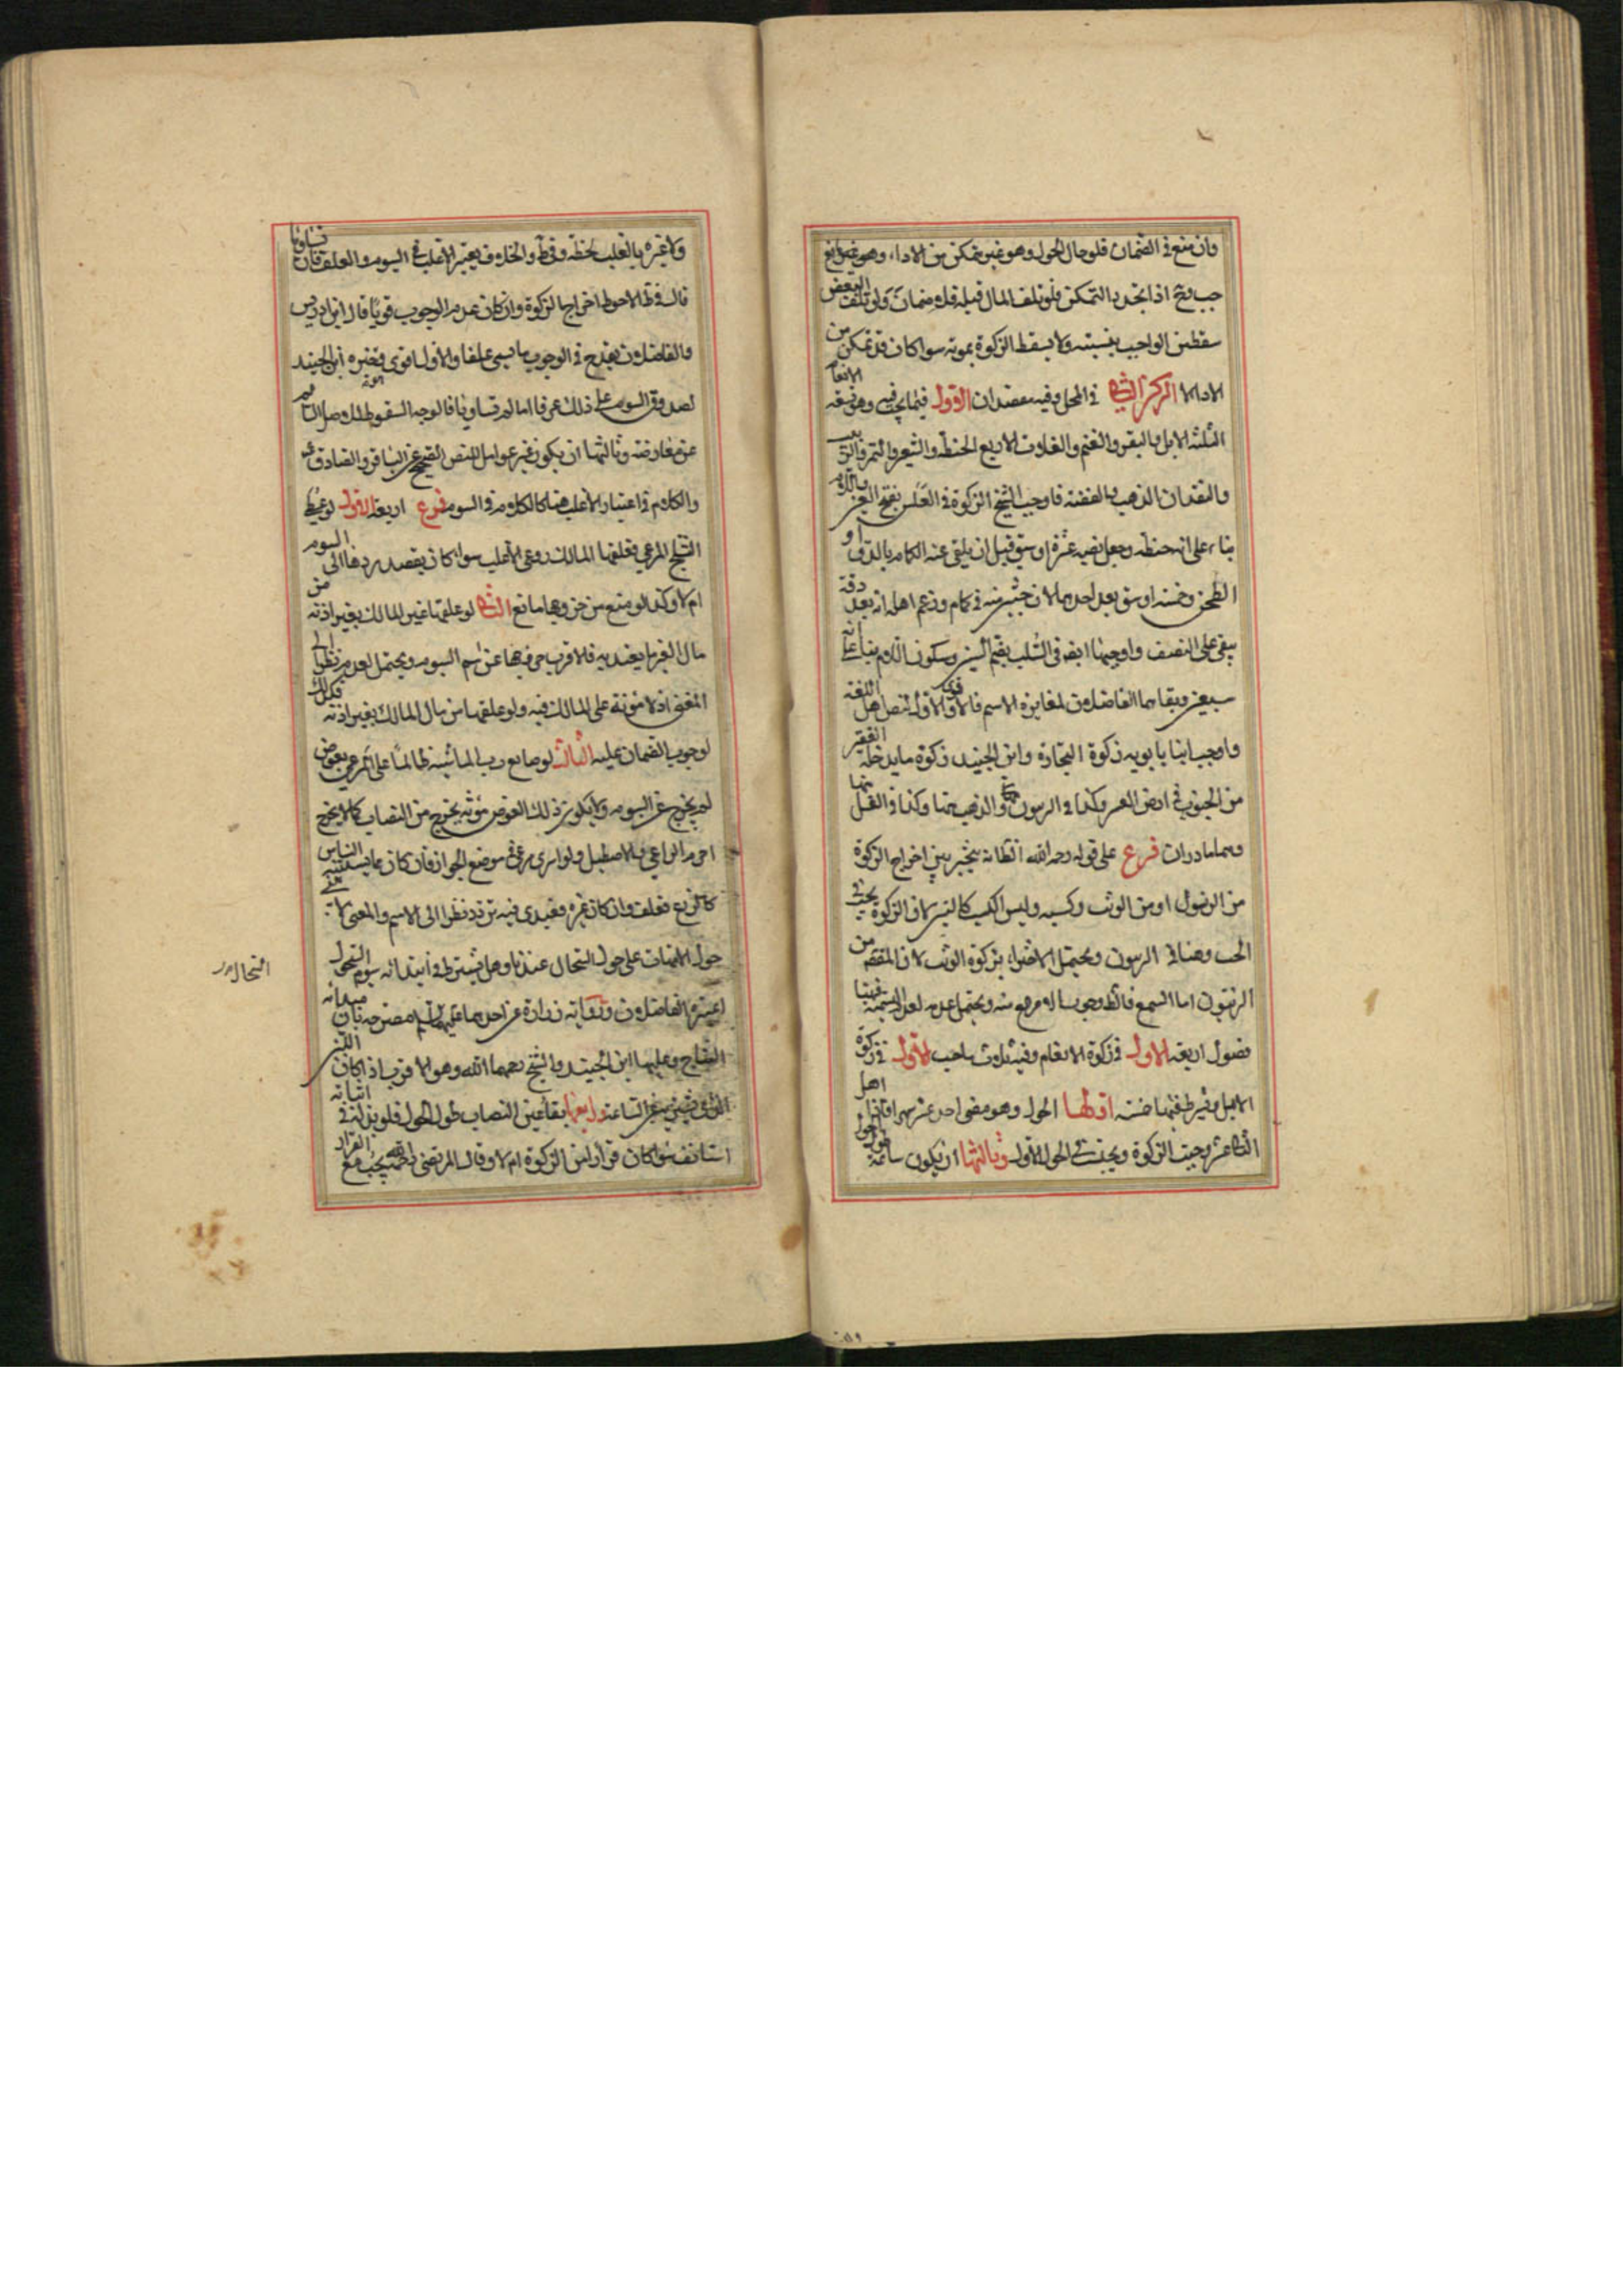 وان منع في الضمان فلو حال الحول وهو غير متمكن من الاداء وهو غير مانع
اذا تجدد التمكن فلو تلف المال قبله فلا ضمان ولو تلف البعض
سقط من الواجب بنسبته ولا يسقط الزكوة بموته سوا كان قد تمكن من
الاداء ام لا الركن الثاني في المحل وفيه مقصدان الاول فيما يجب فيه وهو تسعة الانعام
الثلثة الابل والبقر والغنم والغلات الاربع الحنطة والشعير والتمر والزبيب
والنقدان الذهب والفضة واوجب الشيخ الزكوة في العلس بفتح العين واللام
بناء على انه حنطة وجعل نصبه عشرة اوسق قبل ان يلقى عنه الكمام بالدق او
الطحن وخمسة اوسق بعد احدهما لان حبتين منه في كمام وزعم اهله انه بعد دقه
يبقى على النصف واوجبها ايضا في السلت بضم السين وسكون اللام بناء على انه
شعير ونفاهما الفاضلان لمغايرة الاسم فالاول اقوى لنص اهل اللغة
واوجب ابنا بابويه زكوة التجارة وابن الجنيد زكوة ما يدخله القفيز
من الحبوب في ارض العشر وكذا في الزيتون والزيت منها وكذا في العسل
وهما نادران فرع على قوله رحمه الله الظ انه يتخير بين اخراج الزكوة
من الزيتون او من الزيت وكسبه وليس الكسب كالتبن لان الزكوة تجب في
الحب وهنا في الزيتون ويحتمل الاجتزاء بزكوة الزيت لان المقصد من
الزيتون اما السمسم فالظ وجوب
فصول اربعة الاول في زكوة الانعام وفيه ثلاث مباحث الاول في زكوة
الابل وشرطها خمسة اولها الحول وهو مضى احد عشر شهرا فاذا اهل
الثاني عشر وجبت الزكوة ويحتسب في الحول الاول وثالثها ان يكون سائمة
ولا عبرة بالتعليف لحظة وفي ط والخلاف يعتبر الاغلب في السوم والعلف فان تساويا
قال في ط الاحوط اخراج الزكوة وان كان عدم الوجوب قويا قال ابن ادريس
والفاضلان يقدح في الوجوب ما يسمى علفا والاول اقوى وخيره ابن الجنيد
لصدق السوم على ذلك عرفا اما لو تساويا فالوجه السقوط للاصل السالم
عن معارضة وثالثها ان يكون غير عوامل للنص الصحيح عن الباقر والصادق
والكلام في اعتبار الاغلب هنا كالكلام في السوم فروع اربعة الاول لو غطى
الثلج المرعى فعلفها المالك روعي الاغلب سوا كان يقصد ردها الى السوم
ام لا وكذا لو منع من خروجها مانع الثاني لو علفها غير المالك بغير اذنه من
مال الغير ما يعتد به فلا قرب خروجها عن اسم السوم ويحتمل العدم نظرا الى
المعنى اذ لا مؤنة على المالك فيه ولو علفها من مال المالك بغير اذنه فكذلك
لوجوب الضمان عليه الثالث لو صانع رب الماشية ظالما على المرعى بعوض
لم يخرج عن السوم ولا يكون ذلك العوض مؤنة يخرج من النصاب كما لا يخرج
اجرة الراعي والاصطبل ولو اسرى مرعى موضع الجواز فان كان مما يستنبته الناس
كالزرع فعلف وان كان غيره فعندي فيه تردد نظرا الى الاسم والمعنى
حول الامهات على حول السخال عندنا وهل يشترط في ابتدائه سوم السخال
اعتبره الفاضلان ورواية زرارة عن احدهما عليهما السلم مصرحة بان مبداه
النتاج وعليها ابن الجنيد والشيخ رحمهما الله وهو الاقرب اذا كان اللبن
الذي عن السائمة رابعها بقاء عين النصاب طول الحول فلو بدله في اثنائه
استانف سوا كان فرارا من الزكوة ام لا وقال المرتضى يجب مع الفرار
السخال